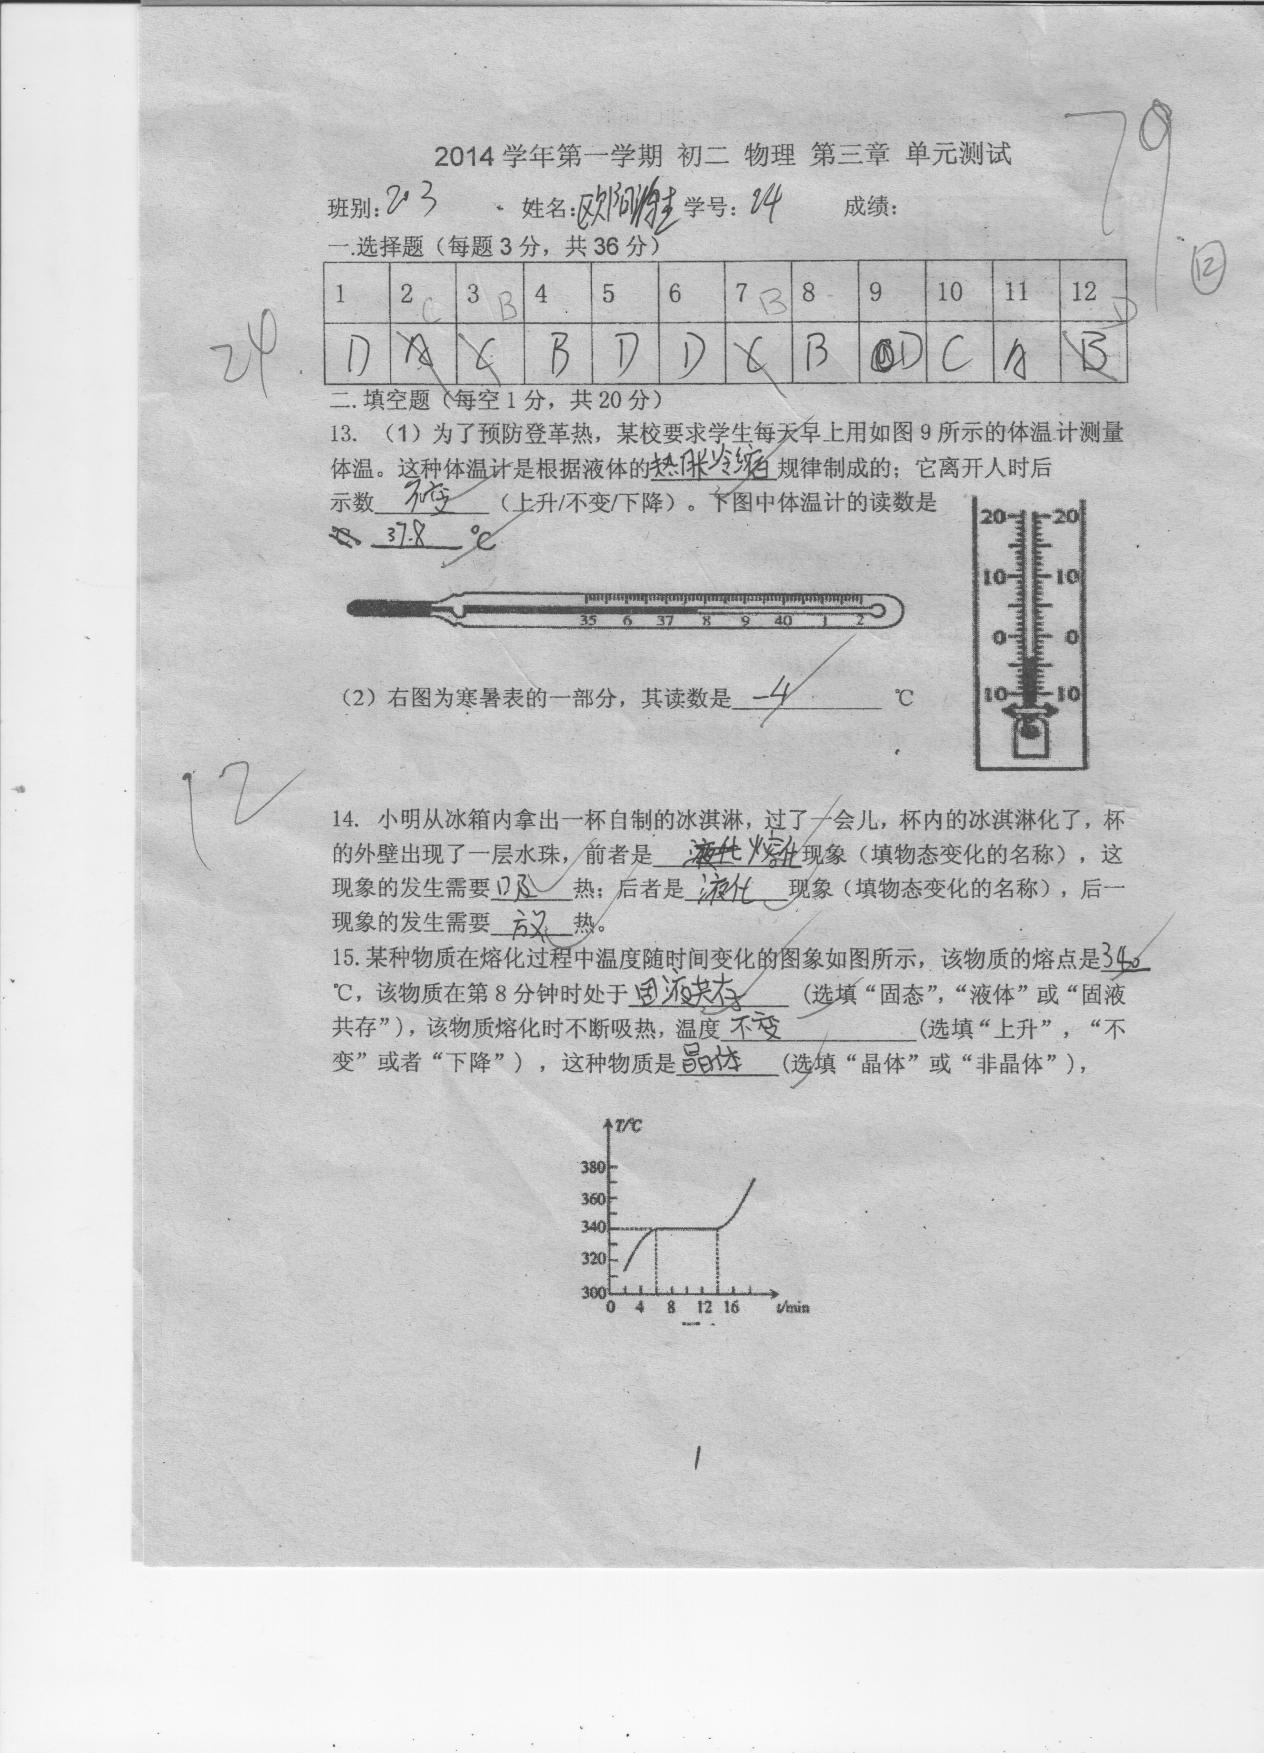 2014 学年第一学期 初二 物理 第三章 单元测试
79
班别: 203 姓名: 学号: 24 成绩:
12
一.选择题（每题 3 分，共 36 分）
1 2 C 3 B 4 5 6 7 B 8 9 10 11 12 D
24
D A C B D D C B D C A B
二. 填空题（每空 1 分，共 20 分）
13. （1）为了预防登革热，某校要求学生每天早上用如图 9 所示的体温计测量
体温。这种体温计是根据液体的热胀冷缩规律制成的；它离开人时后
示数 不变 （上升/不变/下降）。下图中体温计的读数是
37.8 ℃
35 6 37 8 9 40 1 2
20 20
10 10
0 0
10 10
（2）右图为寒暑表的一部分，其读数是 -4 ℃
12
14. 小明从冰箱内拿出一杯自制的冰淇淋，过了一会儿，杯内的冰淇淋化了，杯
的外壁出现了一层水珠，前者是 液化 熔化现象（填物态变化的名称），这
现象的发生需要 吸 热；后者是 液化 现象（填物态变化的名称），后一
现象的发生需要 放 热。
15. 某种物质在熔化过程中温度随时间变化的图象如图所示，该物质的熔点是340
℃，该物质在第 8 分钟时处于 固液共存 (选填“固态”，“液体”或“固液
共存”)，该物质熔化时不断吸热，温度 不变 (选填“上升”，“不
变”或者“下降”)，这种物质是 晶体 (选填“晶体”或“非晶体”)，
T/℃
380
360
340
320
300
0 4 8 12 16 t/min
1